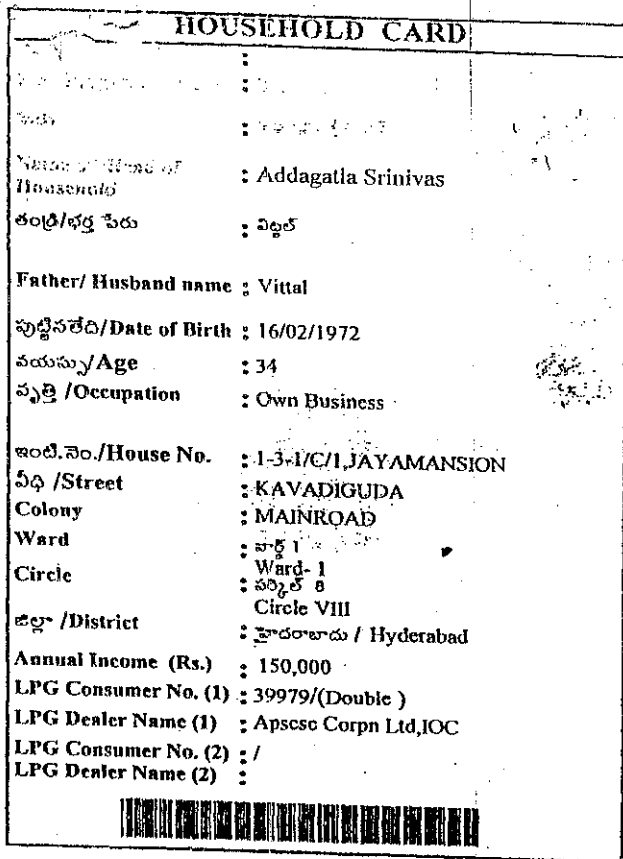 HOUSEHOLD CARD
:
:
:
Name of Head of : Addagatla Srinivas
Household
తండ్రి/భర్త పేరు : విట్టల్
Father/ Husband name : Vittal
పుట్టినతేది/Date of Birth : 16/02/1972
వయస్సు/Age : 34
వృత్తి /Occupation : Own Business
ఇంటి.నెం./House No. : 1-3-1/C/1,JAYAMANSION
వీధి /Street : KAVADIGUDA
Colony : MAINROAD
Ward : వార్డ్ 1
Ward- 1
Circle : సర్కిల్ 8
Circle VIII
జిల్లా /District : హైదరాబాదు / Hyderabad
Annual Income (Rs.) : 150,000
LPG Consumer No. (1) : 39979/(Double )
LPG Dealer Name (1) : Apscsc Corpn Ltd,IOC
LPG Consumer No. (2) : /
LPG Dealer Name (2) :